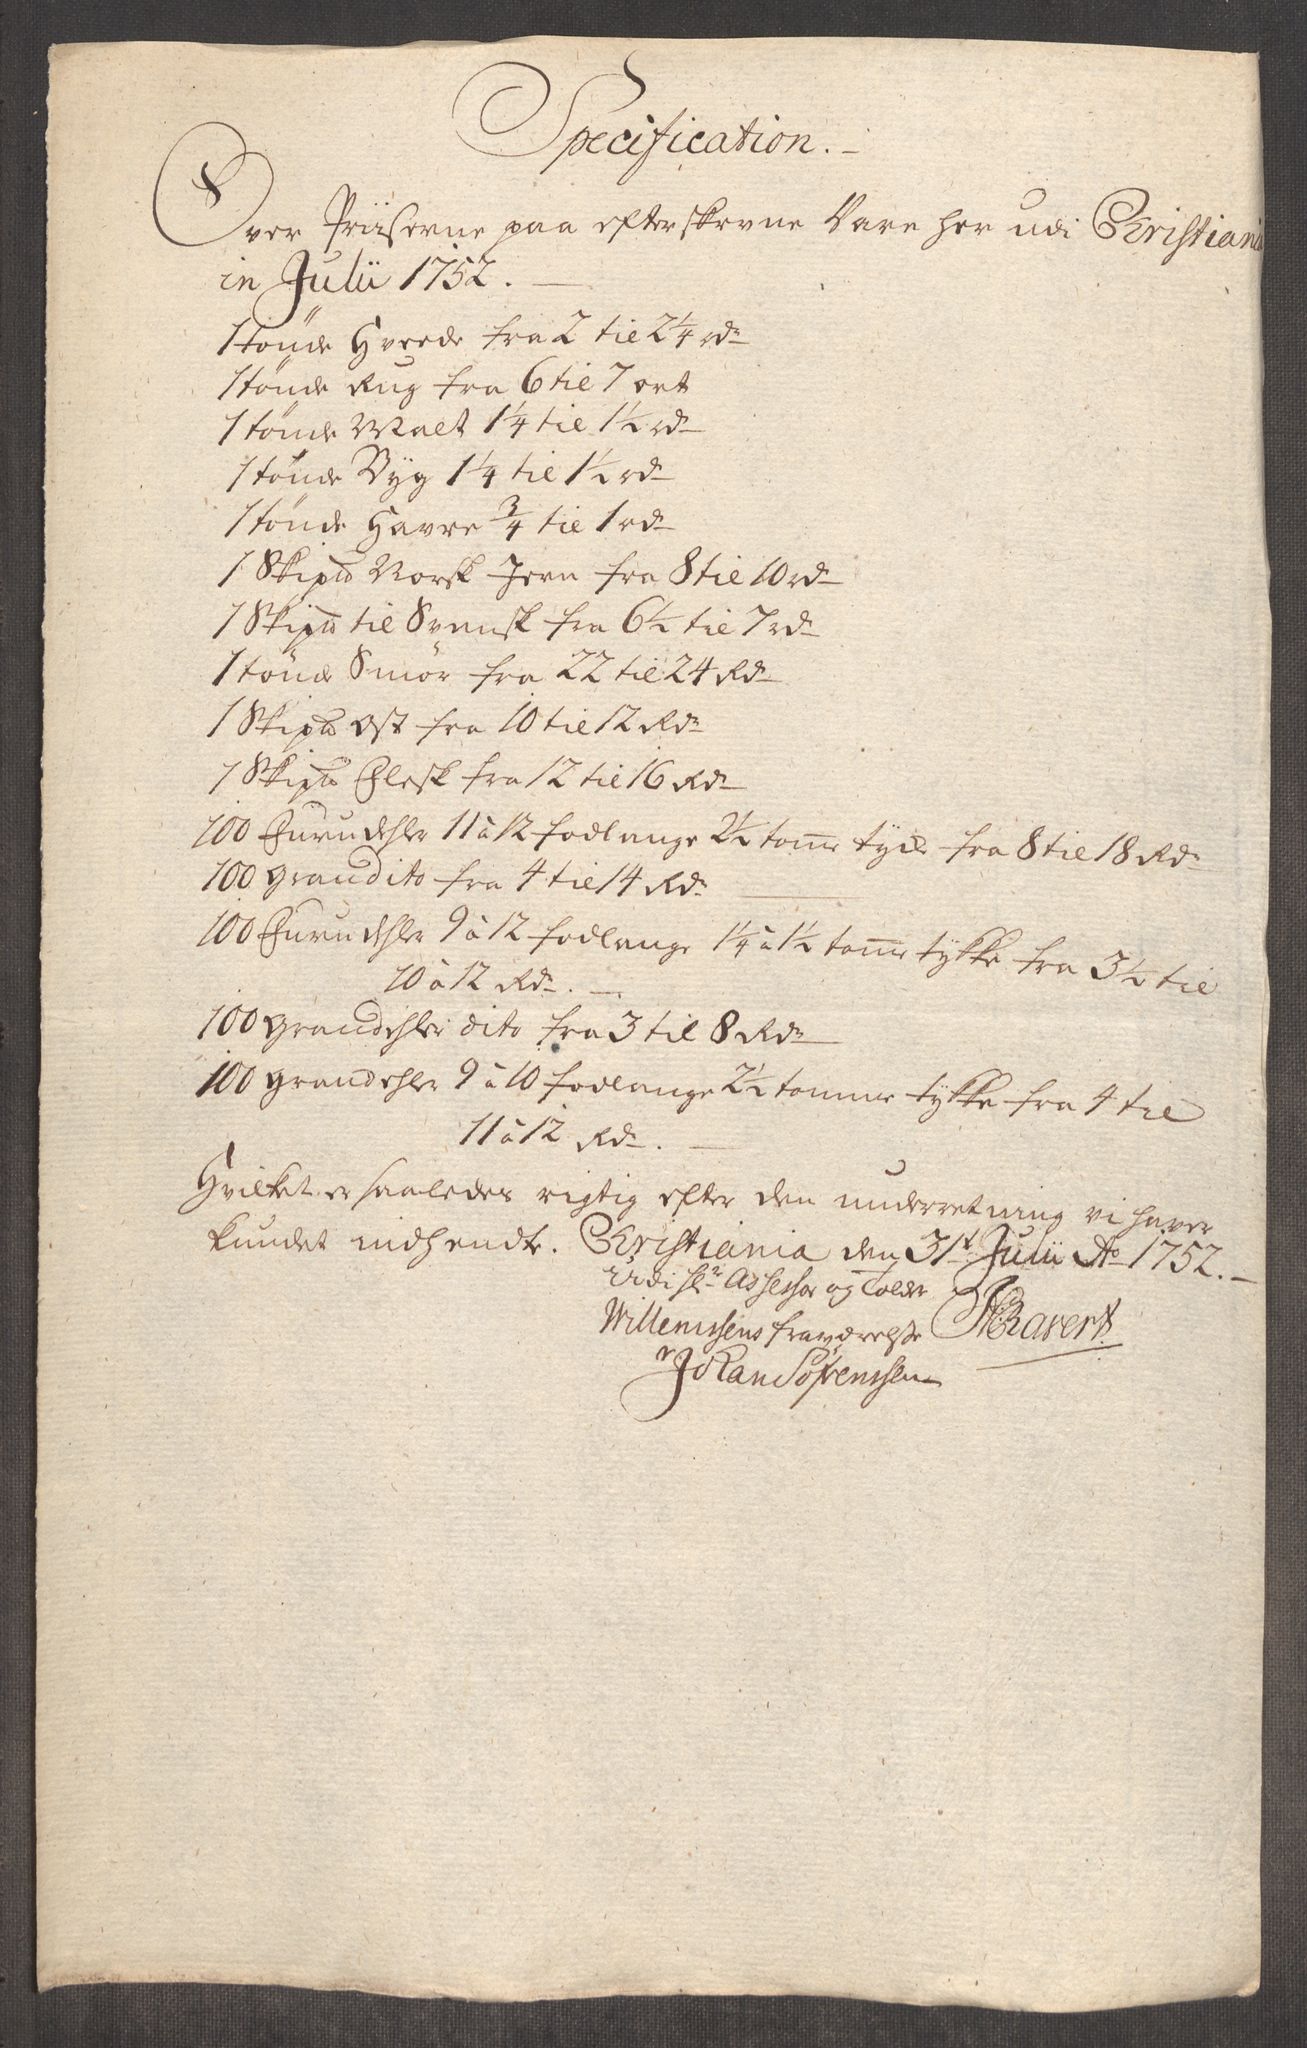 Specification.
Over Priiserne paa efterskrevne Vare her udi Christiania
in Julii 1752.
1 tønde Hvede fra 2 til 2¼ rdr
1 tønde Rug fra 6 til 7 ort
1 tønde Malt 1¼ til 1½ rdr
1 tønde Byg 1¼ til 1½ rdr
1 tønde Havre ¾ til 1 rdr
1 Skip℔ Norsk Jern fra 8 til 10 rdr
1 Skip℔ til Svensk fra 6½ til 7 rdr
1 tønde Smør fra 22 til 24 Rdr
1 Skip℔ Ost fra 10 til 12 Rdr
1 Skip℔ Flesk fra 12 til 16 Rdr
100 Furudehler 11 à 12 fod lange 2½ tome tyck fra 8 til 18 Rdr
100 gran dito fra 4 til 14 Rdr
100 Furudehler 9 à 12 fod lange 1¼ à 1½ tome tykke fra 3½ til
10 à 12 Rdr.
100 grandehler dito fra 3 til 8 Rdr
100 grandehler 9 à 10 fod lange 2½ tomme tykke fra 4 til
11 à 12 Rdr.
Hvilket er saaledes rigtig efter den underretning vi haver
kundet indhendte. Christiania den 31t Julii Ao 1752.
Udi Hr Assessor og Tolder
Willemsens fraværelse Ravert
Johan Sørenssen